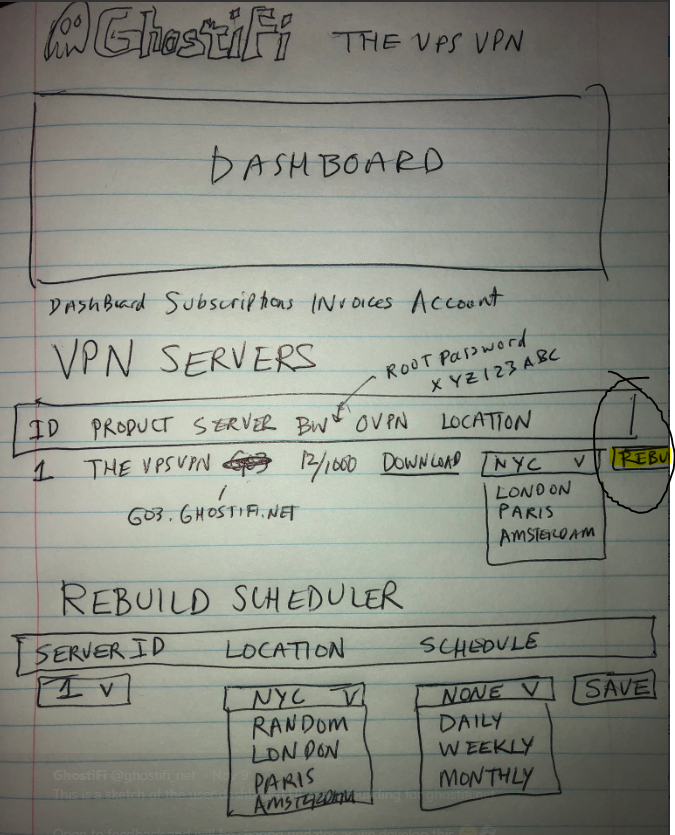 GhostiFi THE VPS VPN
DASHBOARD
DashBoard Subscriptions INvoices Account
VPN SERVERS
ROOT Password
XYZ123ABC
ID PRODUCT SERVER BW OVPN LOCATION
1 THE VPSVPN G03 12/1000 DOWNLOAD NYC V REBU
G03.GHOSTIFI.NET
LONDON
PARIS
AMSTERDAM
REBUILD SCHEDULER
SERVER ID LOCATION SCHEDULE
1 V NYC V NONE V SAVE
RANDOM DAILY
LONDON WEEKLY
PARIS MONTHLY
AMSTERDAM
GhostiFi @ghostifi_net
This is a sketch of the user